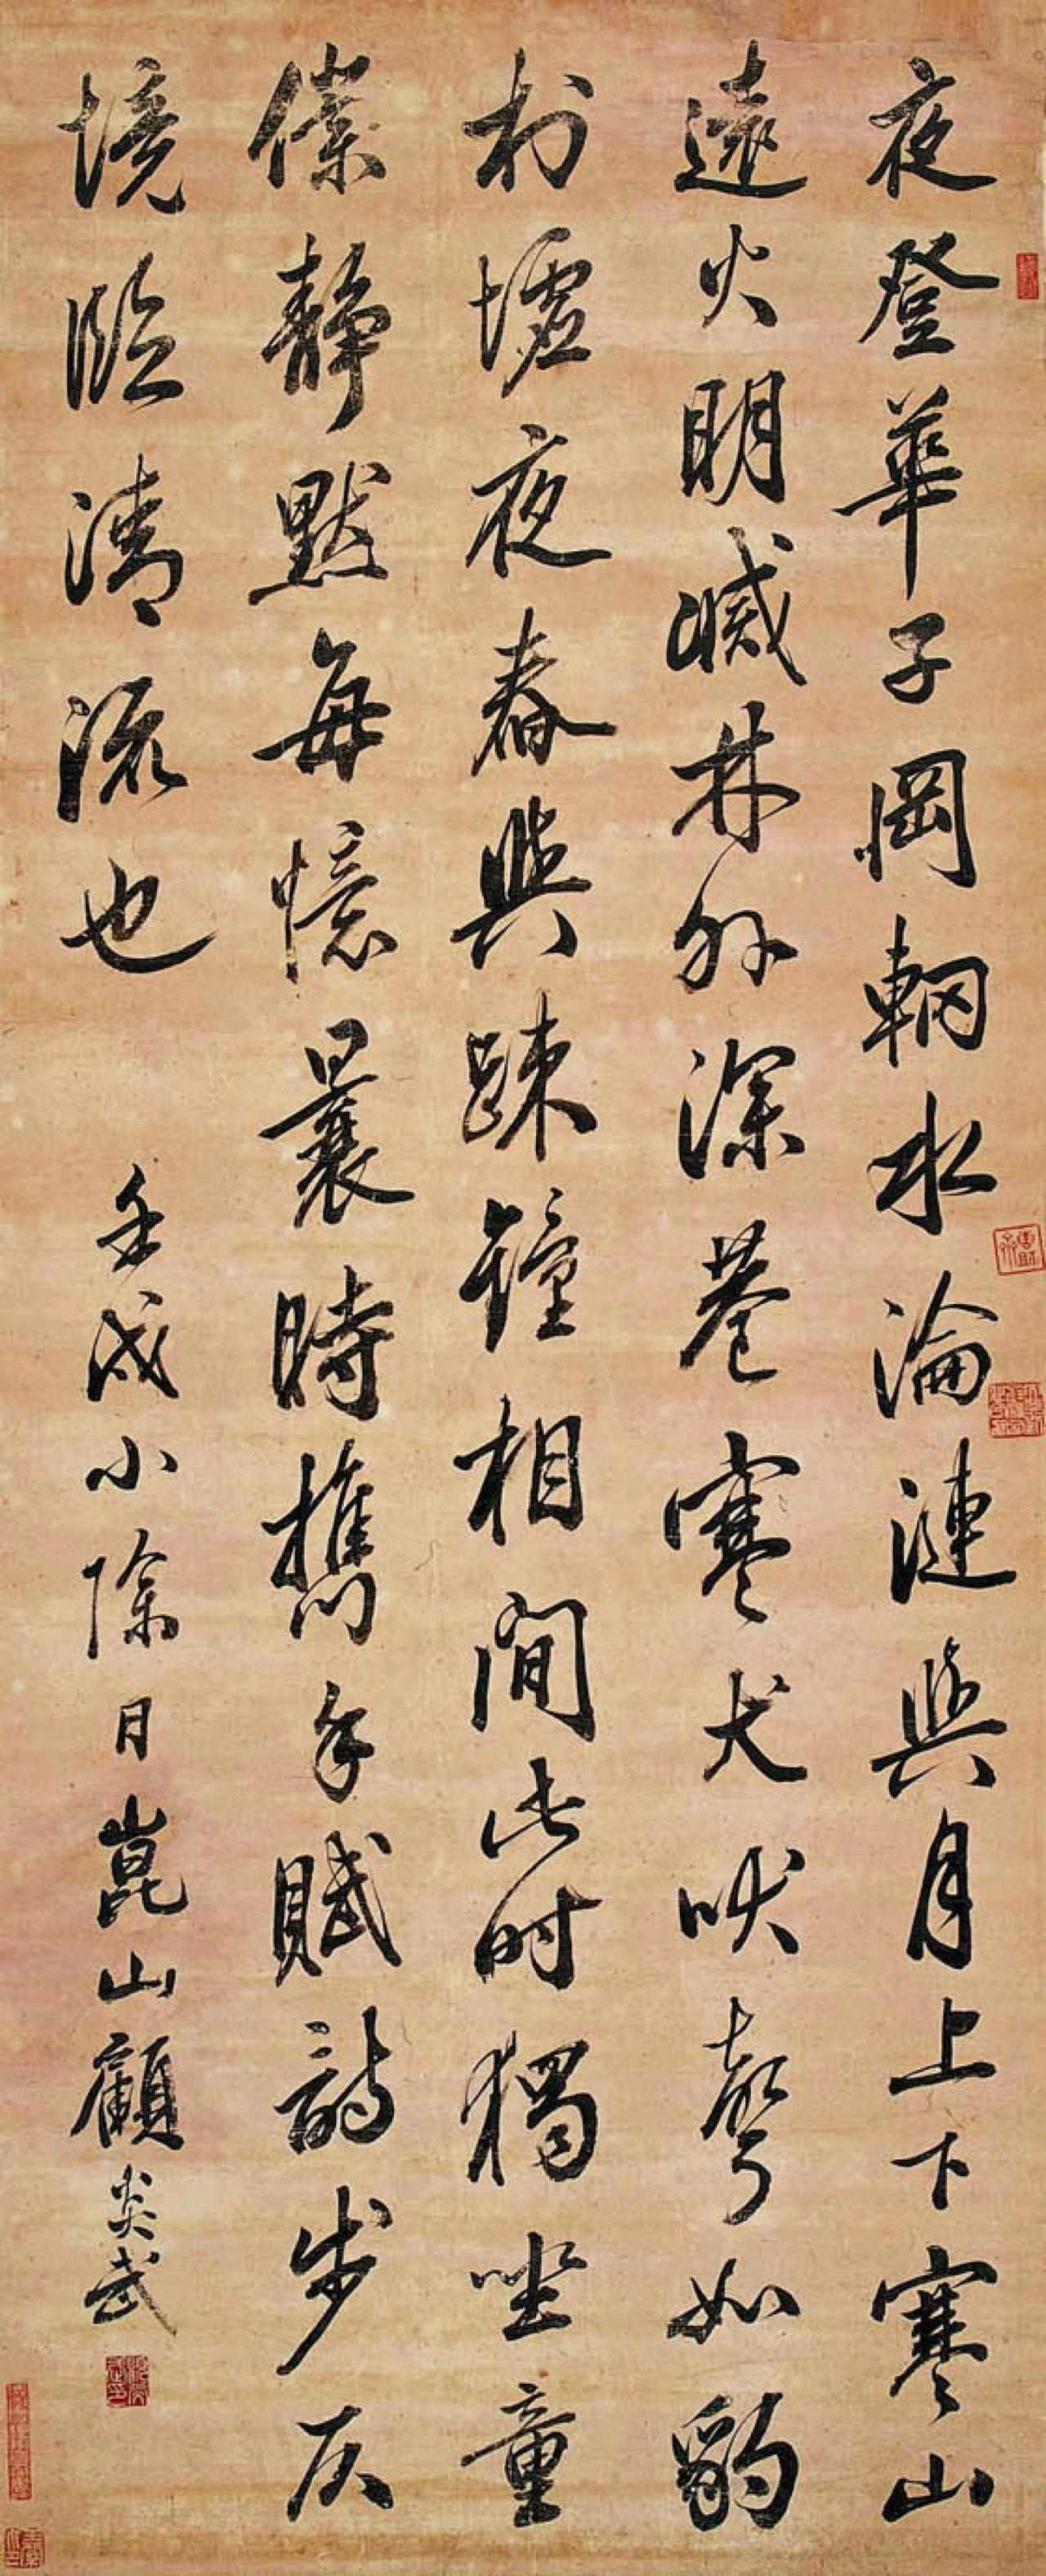 夜登華子岡輞水淪漣與月上下寒山
遠火明滅林外深巷寒犬吠聲如豹
村墟夜舂與疎鐘相間此時獨坐童
僕靜默每憶曩時攜手賦詩步仄
境臨清流也 壬戌小除日崑山顧炎武